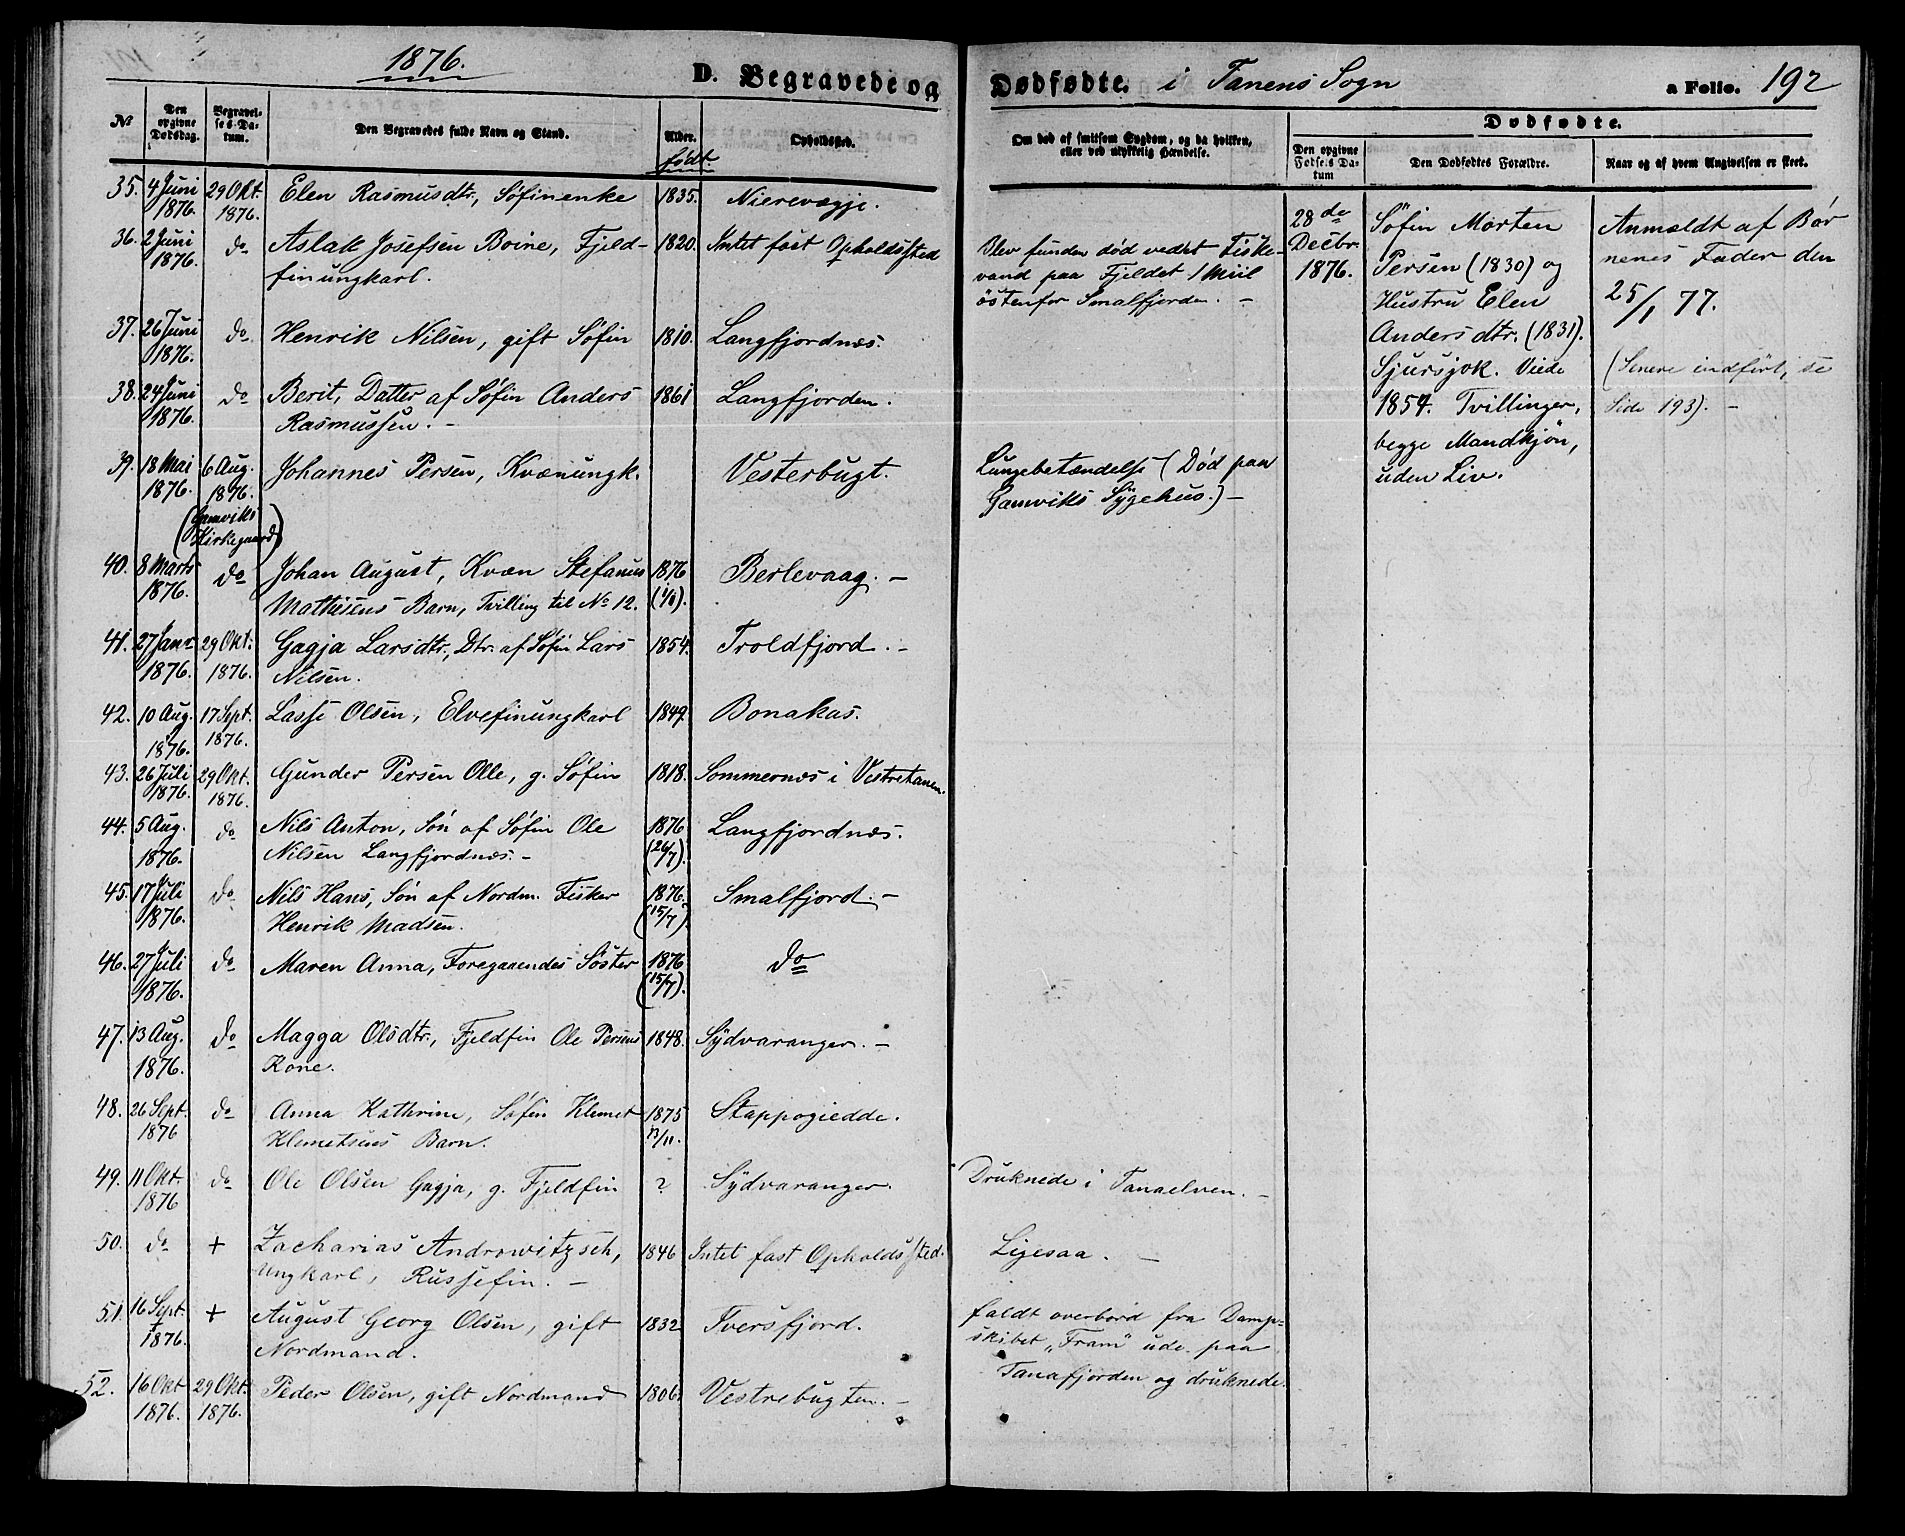 1876.
D. Begravede og Dødfødte. i Tanens Sogn a Folio. 192
No
Den opgivne Dødsdag.
Begravelses-Datum.
Den Begravedes fulde Navn og Stand.
Alder.
født
Opholdssted.
Om død af smitsom Sygdom, og da hvilken,
eller ved ulykkelig Hændelse.
Dødfødte.
Den opgivne Fødsels Datum
Den Dødfødtes Forældre.
Naar og af hvem Angivelsen er skeet.
35. 4 Juni 1876. 29 Okt. 1876. Elen Rasmusdtr., Søfinenke 1835. Nierevægje.
36. 2 Juni 1876. do Aslak Josefsen Boine, Fjeld- 1820. Intet fast Opholdssted
finungkarl.
Blev funden død vedet Fiske-
vand paa Fjeldet 1 Miil
östenfor Smalfjorden. -
37. 26 Juni 1876. do Henrik Nilsen, gift Søfin 1810. Langfjordnæs.
38. 24 Juni 1876. do Berit, Datter af Søfin Anders 1861 Langfjorden.
Rasmussen. -
39. 18 Mai 1876. 6 Aug. 1876. Johannes Persen, Kvænungk. Vesterbugt.
(Gamviks Kirkegaard)
Lungebetændelse (Død paa
Gamviks Sygehus.) -
40. 8 Marts 1876. do Johan August, Kvæn Stefanus 1876 Berlevaag. -
Mathisens Barn, Tvilling til No 12.
41. 27 Janr 1876. 29 Okt. 1876. Gagja Larsdtr., Dtr. af Søfin Lars 1854. Troldfjord. -
Nilsen.
42. 10 Aug. 1876. 17 Sept. 1876. Lasse Olsen, Elvefinungkarl 1849. Bonakas.
43. 26 Juli 1876. 29 Okt. 1876. Gunder Persen Olle, g. Søfin 1818. Sommernæs i Vestretanen.
44. 5 Aug. 1876. do Nils Anton, Søn af Søfin Ole 1876 (26/7). Langfjordnæs.
Nilsen Langfjordnæs. -
45. 17 Juli 1876. do Nils Hans, Søn af Nordm. Fisker 1876. (15/7). Smalfjord. -
Henrik Madsen.
46. 27 Juli 1876. do Maren Anna, Foregaaendes Söster 1876 (15/7). do
47. 13 Aug. 1876. do Magga Olsdtr., Fjeldfin Ole Persens 1848. Sydvaranger. -
Kone.
48. 26 Sept. 1876 do Anna Kathrine, Søfin Klemet 1875 13/11. Stappogiedde.
Klemetsens Barn.
49. 11 Okt. 1876 do Ole Olsen Gagja, g. Fjeldfin ? Sydvaranger. Druknede i Tanaelven. -
50. do + Zacharias Androwitzsch, 1846 Intet fast Opholdssted. Ligesaa. -
Ungkarl, Russefin. -
51. 16 Sept. 1876. + August Georg Olsen, gift 1832 Tversfjord.
Nordmand.
faldt overbord fra Damp-
skibet „Fram" ude paa
Tanafjorden og druknede.
52. 16 Okt 1876. 29 Okt. 1876. Peder Olsen, gift Nordmand 1806. Vestrebugten. -
28de
Decbr.
1876.
Søfin Morten
Persen (1830) og
Hustru Elen
Andersdtr. (1831).
Sjursjok. Viede
1854. Tvillinger,
begge Mandkjøn,
uden Liv.
Anmeldt af Bør
nenes Fader den
25/1 77.
(Senere indført, se
Side 193). -